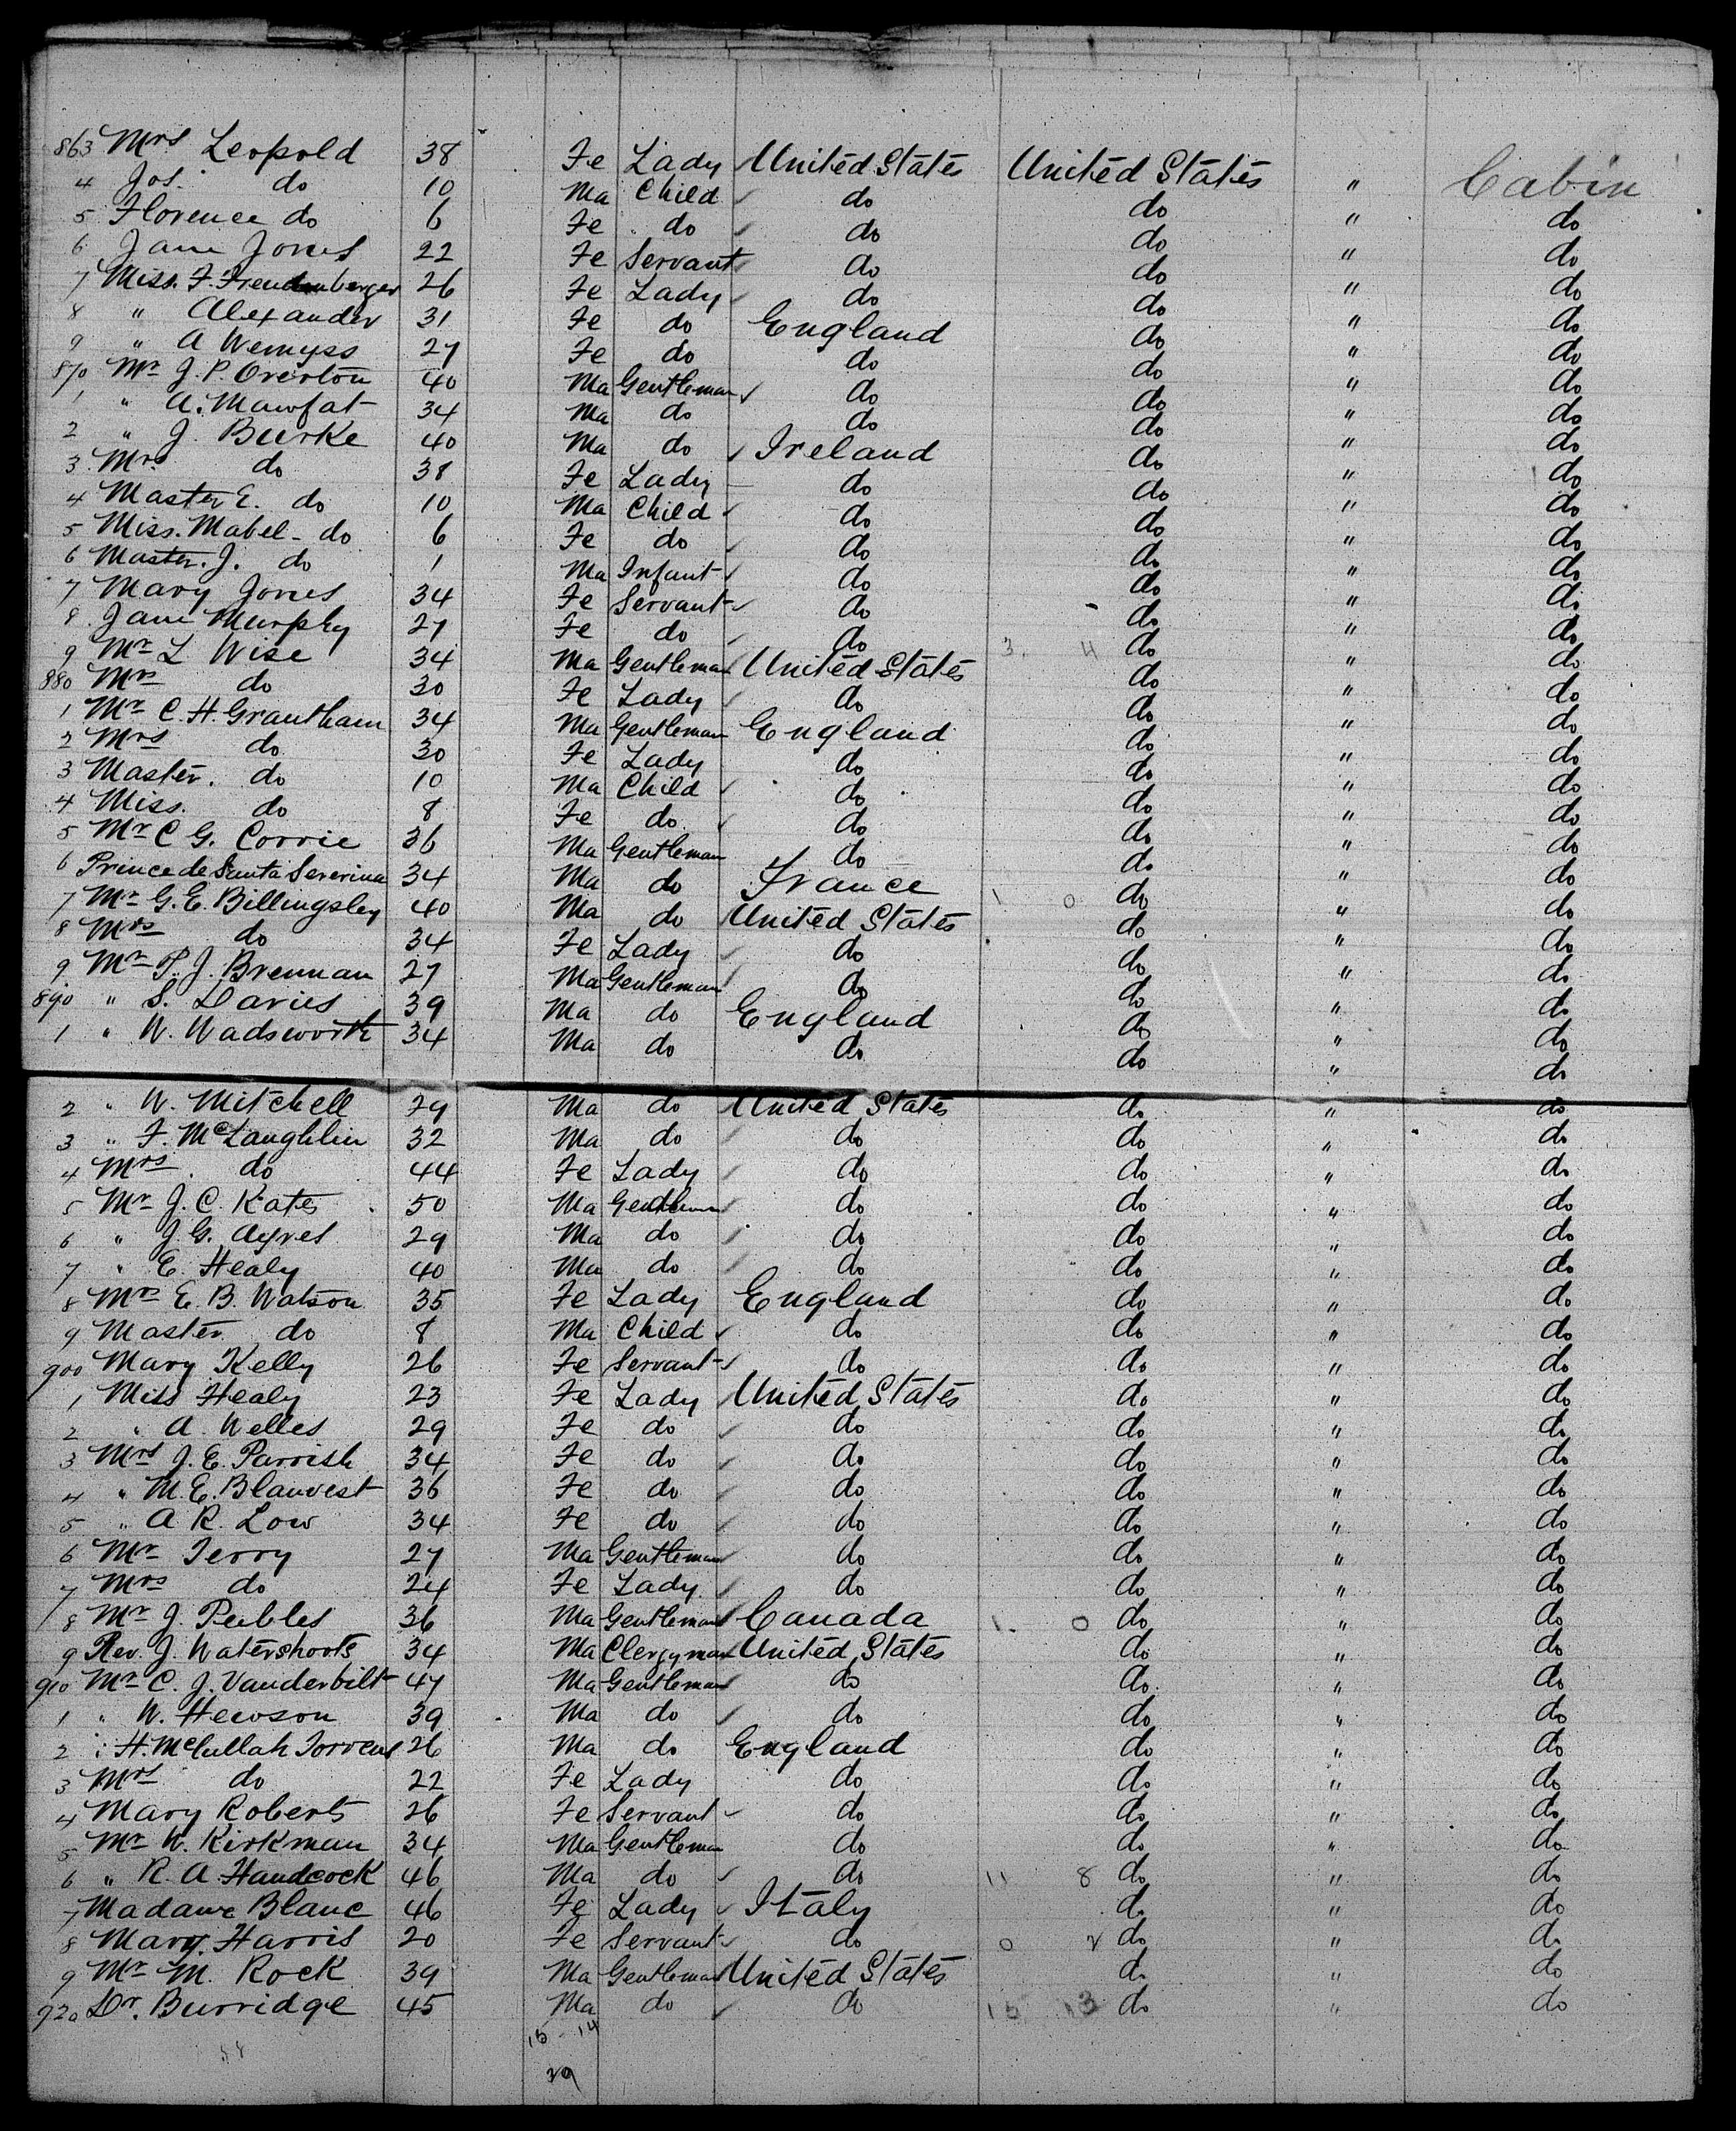 863 Mrs Leopold 38 Fe Lady United States United States " Cabin
4 Jos. do 10 Ma Child do do " do
5 Florence do 6 Fe do do do " do
6 Jane Jones 22 Fe Servant do do " do
7 Miss. F. Freudenberger 26 Fe Lady do do " do
8 " Alexander 31 Fe do England do " do
9 " A Wemyss 27 Fe do do do " do
870 Mr J. P. Overton 40 Ma Gentleman do do " do
1 " A. Mawfat 34 Ma do do do " do
2 " J. Burke 40 Ma do Ireland do " do
3 Mrs do 38 Fe Lady do do " do
4 Master E. do 10 Ma Child do do " do
5 Miss. Mabel - do 6 Fe do do do " do
6 Master. J. do 1 Ma Infant do do " do
7 Mary Jones 34 Fe Servant do do " do
8 Jane Murphy 27 Fe do do do " do
9 Mr L Wise 34 Ma Gentleman United States 3. 4 do " do
880 Mrs do 30 Fe Lady do do " do
1 Mr C. H. Grantham 34 Ma Gentleman England do " do
2 Mrs do 30 Fe Lady do do " do
3 Master. do 10 Ma Child do do " do
4 Miss. do 8 Fe do do do " do
5 Mr C G. Corrie 36 Ma Gentleman do do " do
6 Prince de Santa Severina 34 Ma do France do " do
7 Mr G. E. Billingsley 40 Ma do United States 1 0 do " do
8 Mrs do 34 Fe Lady do do " do
9 Mr P. J. Brennan 27 Ma Gentleman do do " do
890 " S. Davies 39 Ma do England do " do
1 " W. Wadsworth 34 Ma do do do " do
2 " W. Mitchell 29 Ma do United States do " do
3 " F. McLaughlin 32 Ma do do do " do
4 Mrs do 44 Fe Lady do do " do
5 Mr J. C. Kates 50 Ma Gentleman do do " do
6 " J. G. Ayres 29 Ma do do do " do
7 " E. Healy 40 Ma do do do " do
8 Mrs E. B. Watson 35 Fe Lady England do " do
9 Master do 8 Ma Child do do " do
900 Mary Kelly 26 Fe Servant do do " do
1 Miss Healy 23 Fe Lady United States do " do
2 " A. Welles 29 Fe do do do " do
3 Mrs J. E. Parrish 34 Fe do do do " do
4 " M. E. Blauvest 36 Fe do do do " do
5 " A R. Low 34 Fe do do do " do
6 Mr Terry 27 Ma Gentleman do do " do
7 Mrs do 24 Fe Lady do do " do
8 Mr J. Peebles 36 Ma Gentleman Canada 1. 0 do " do
9 Rev. J. Watershoots 34 Ma Clergyman United States do " do
910 Mr C. J. Vanderbilt 47 Ma Gentleman do do " do
1 " W. Hewson 39 Ma do do do " do
2 " H. McCullah Torrens 26 Ma do England do " do
3 Mrs do 22 Fe Lady do do " do
4 Mary Roberts 26 Fe Servant do do " do
5 Mr W. Kirkman 34 Ma Gentleman do do " do
6 " R. A. Handcock 46 Ma do do 11 8 do " do
7 Madame Blanc 46 Fe Lady Italy do " do
8 Mary. Harris 20 Fe Servant do 0 2 do " do
9 Mr M. Rock 39 Ma Gentleman United States do " do
920 Dr. Burridge 45 Ma do do 15 13 do " do
15 - 14
29